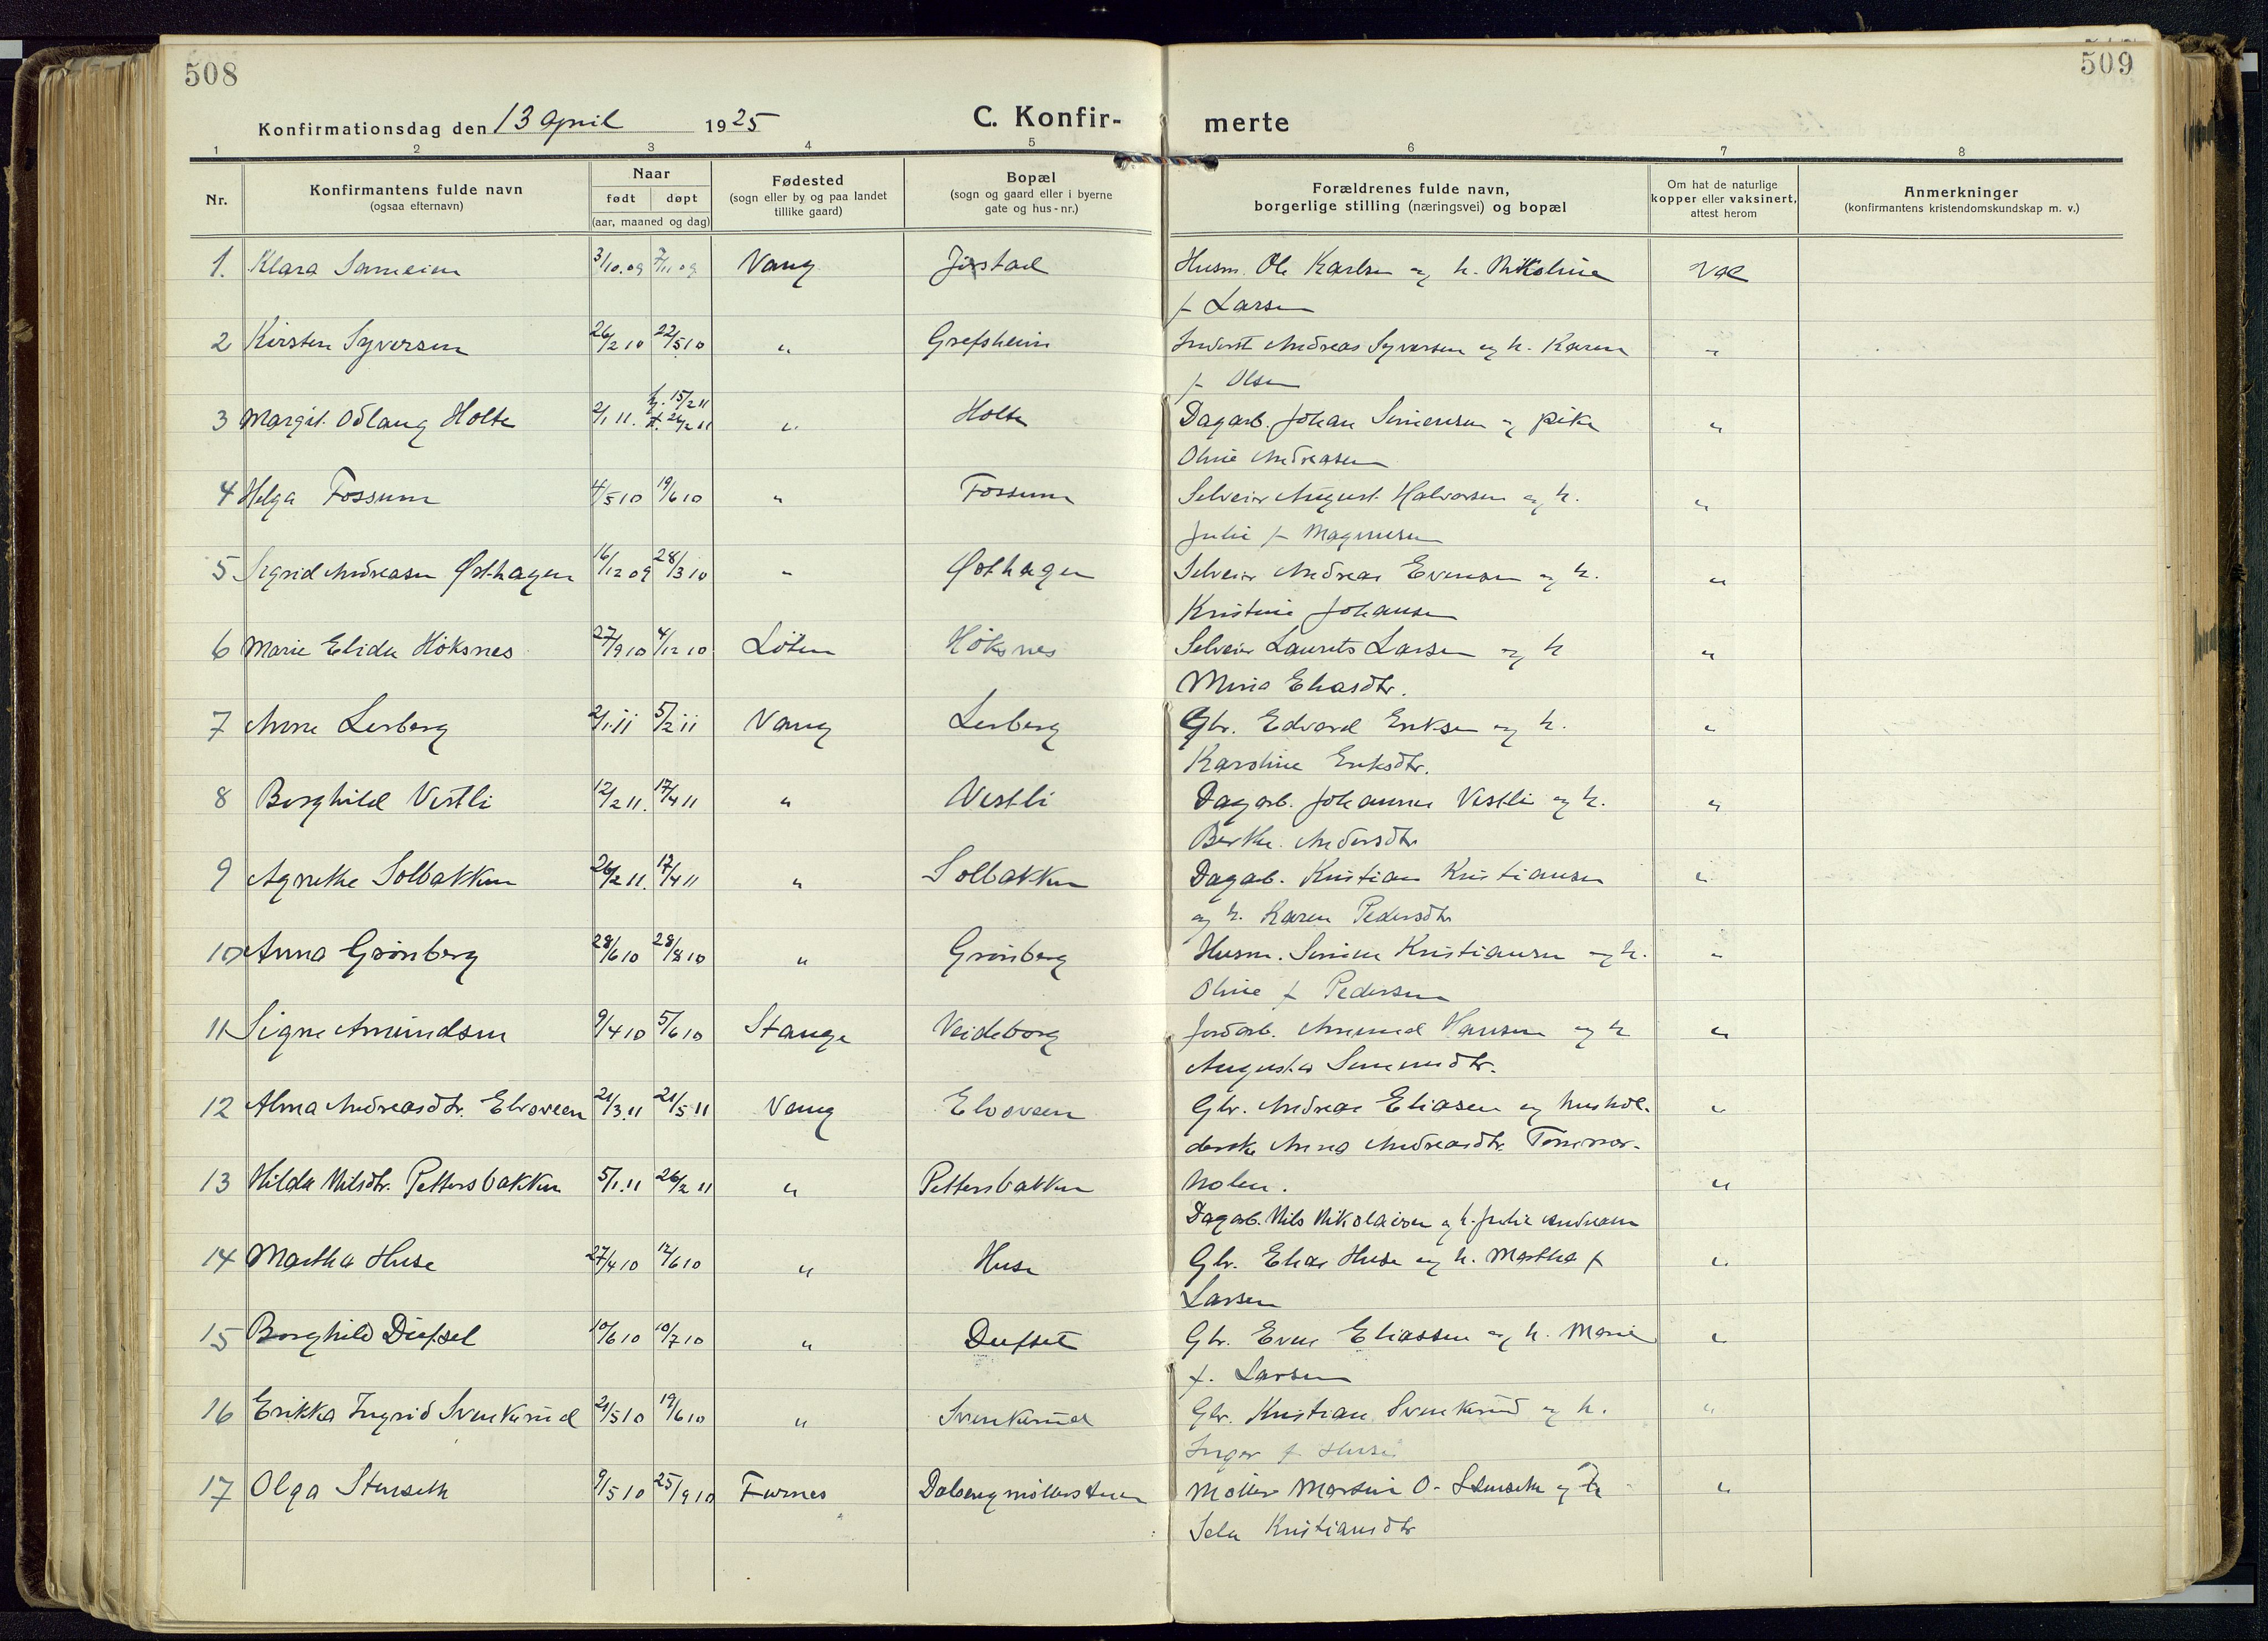 508
509
Konfirmationsdag den 13 april 1925
C. Konfir- merte
1 2 3 4 5 6 7 8
Nr.
Konfirmantens fulde navn
(ogsaa efternavn)
Naar
født døpt
(aar, maaned og dag)
Fødested
(sogn eller by og paa landet
tillike gaard)
Bopæl
(sogn og gaard eller i byerne
gate og hus-nr.)
Forældrenes fulde navn,
borgerlige stilling (næringsvei) og bopæl
Om hat de naturlige
kopper eller vaksinert,
attest herom
Anmerkninger
(konfirmantens kristendomskundskap m. v.)
1. Klara 3/10.09 7/11 09 Vang Husm. Ole Karlsen og h. Nikoline
f Larsen
2 Kirsten Syversen 26/2 10 22/5 10 " Grefsheim Inderst Andreas Syversen og h. Karen "
f Olsen
3 Margit Odlaug Holte 2/1 11. h. 15/2 11 " Holte Dagarb. Johan Simensen og pike "
Oline Andreasen
4 Helga Fossum 4/5 10 19/6 10 " Fossum Selveier August Halvorsen og h. "
Julie f Magnusen
5 Sigrid Andreasen Østhagen 16/12 09 28/3 10 " Østhagen Selveier Andreas Evensen og h. "
Kristine Johansen
6 Marie Elida Höksnes 27/9 10 4/12 10 Löten Höksnes Selveier Laurits Larsen og h "
Mina Eliasdtr.
7 Anne Lerberg 2/1 11 5/2 11 Vang Lerberg Gbr. Edvard Eriksen og h. "
Karoline Eriksdtr.
8 Borghild Vestli 12/2 11. 17/4 11 " Vestli Dagarb. Johannes Vestli og h. "
Berthe Andersdtr
9 Agnethe Solbakken 26/2 11. 17/4 11 " Solbakken Dagarb. Kristian Kristiansen "
og h. Karen Pedersdtr
10 Anna Grönberg 28/6 10 28/8 10 " Grönberg Husm. Simen Kristiansen og h. "
Oline f Pedersen
11 Signe Amundsen 9/4 10 5/6 10 Stange Veideborg Jordarb. Amund Hansen og h "
Augusta
12 Alma Andreasdtr. Elvoveen 21/3 11 21/5 11 Vang Elvoveen Gbr. Andreas Eliasen og hushol- "
derske Anna Andreasdtr. Tommer-
13 Hilda Nilsdtr. Pettersbakken 5/1.11 26/2 11 " Pettersbakken holen. "
Dagarb. Nils Nikolaisen og h. Julie Andreasen
14 Martha Huse 27/4 10 12/6 10 " Huse Gbr. Elias Huse og h. Martha f "
Larsen
15 Borghild Dufset 10/6 10 10/7 10 " Dufset Gbr. Even Eliassen og h. Marie "
f. Larsen
16 Erikka Ingrid Svenkerud 21/5 10 19/6 10 " Svenkerud Gbr. Kristian Svenkerud og h. "
Inger f Huse
17 Olga Stenseth 9/5 10 25/9 10 Furnes Møller Martin O. Stenseth og h "
Kristiansdtr